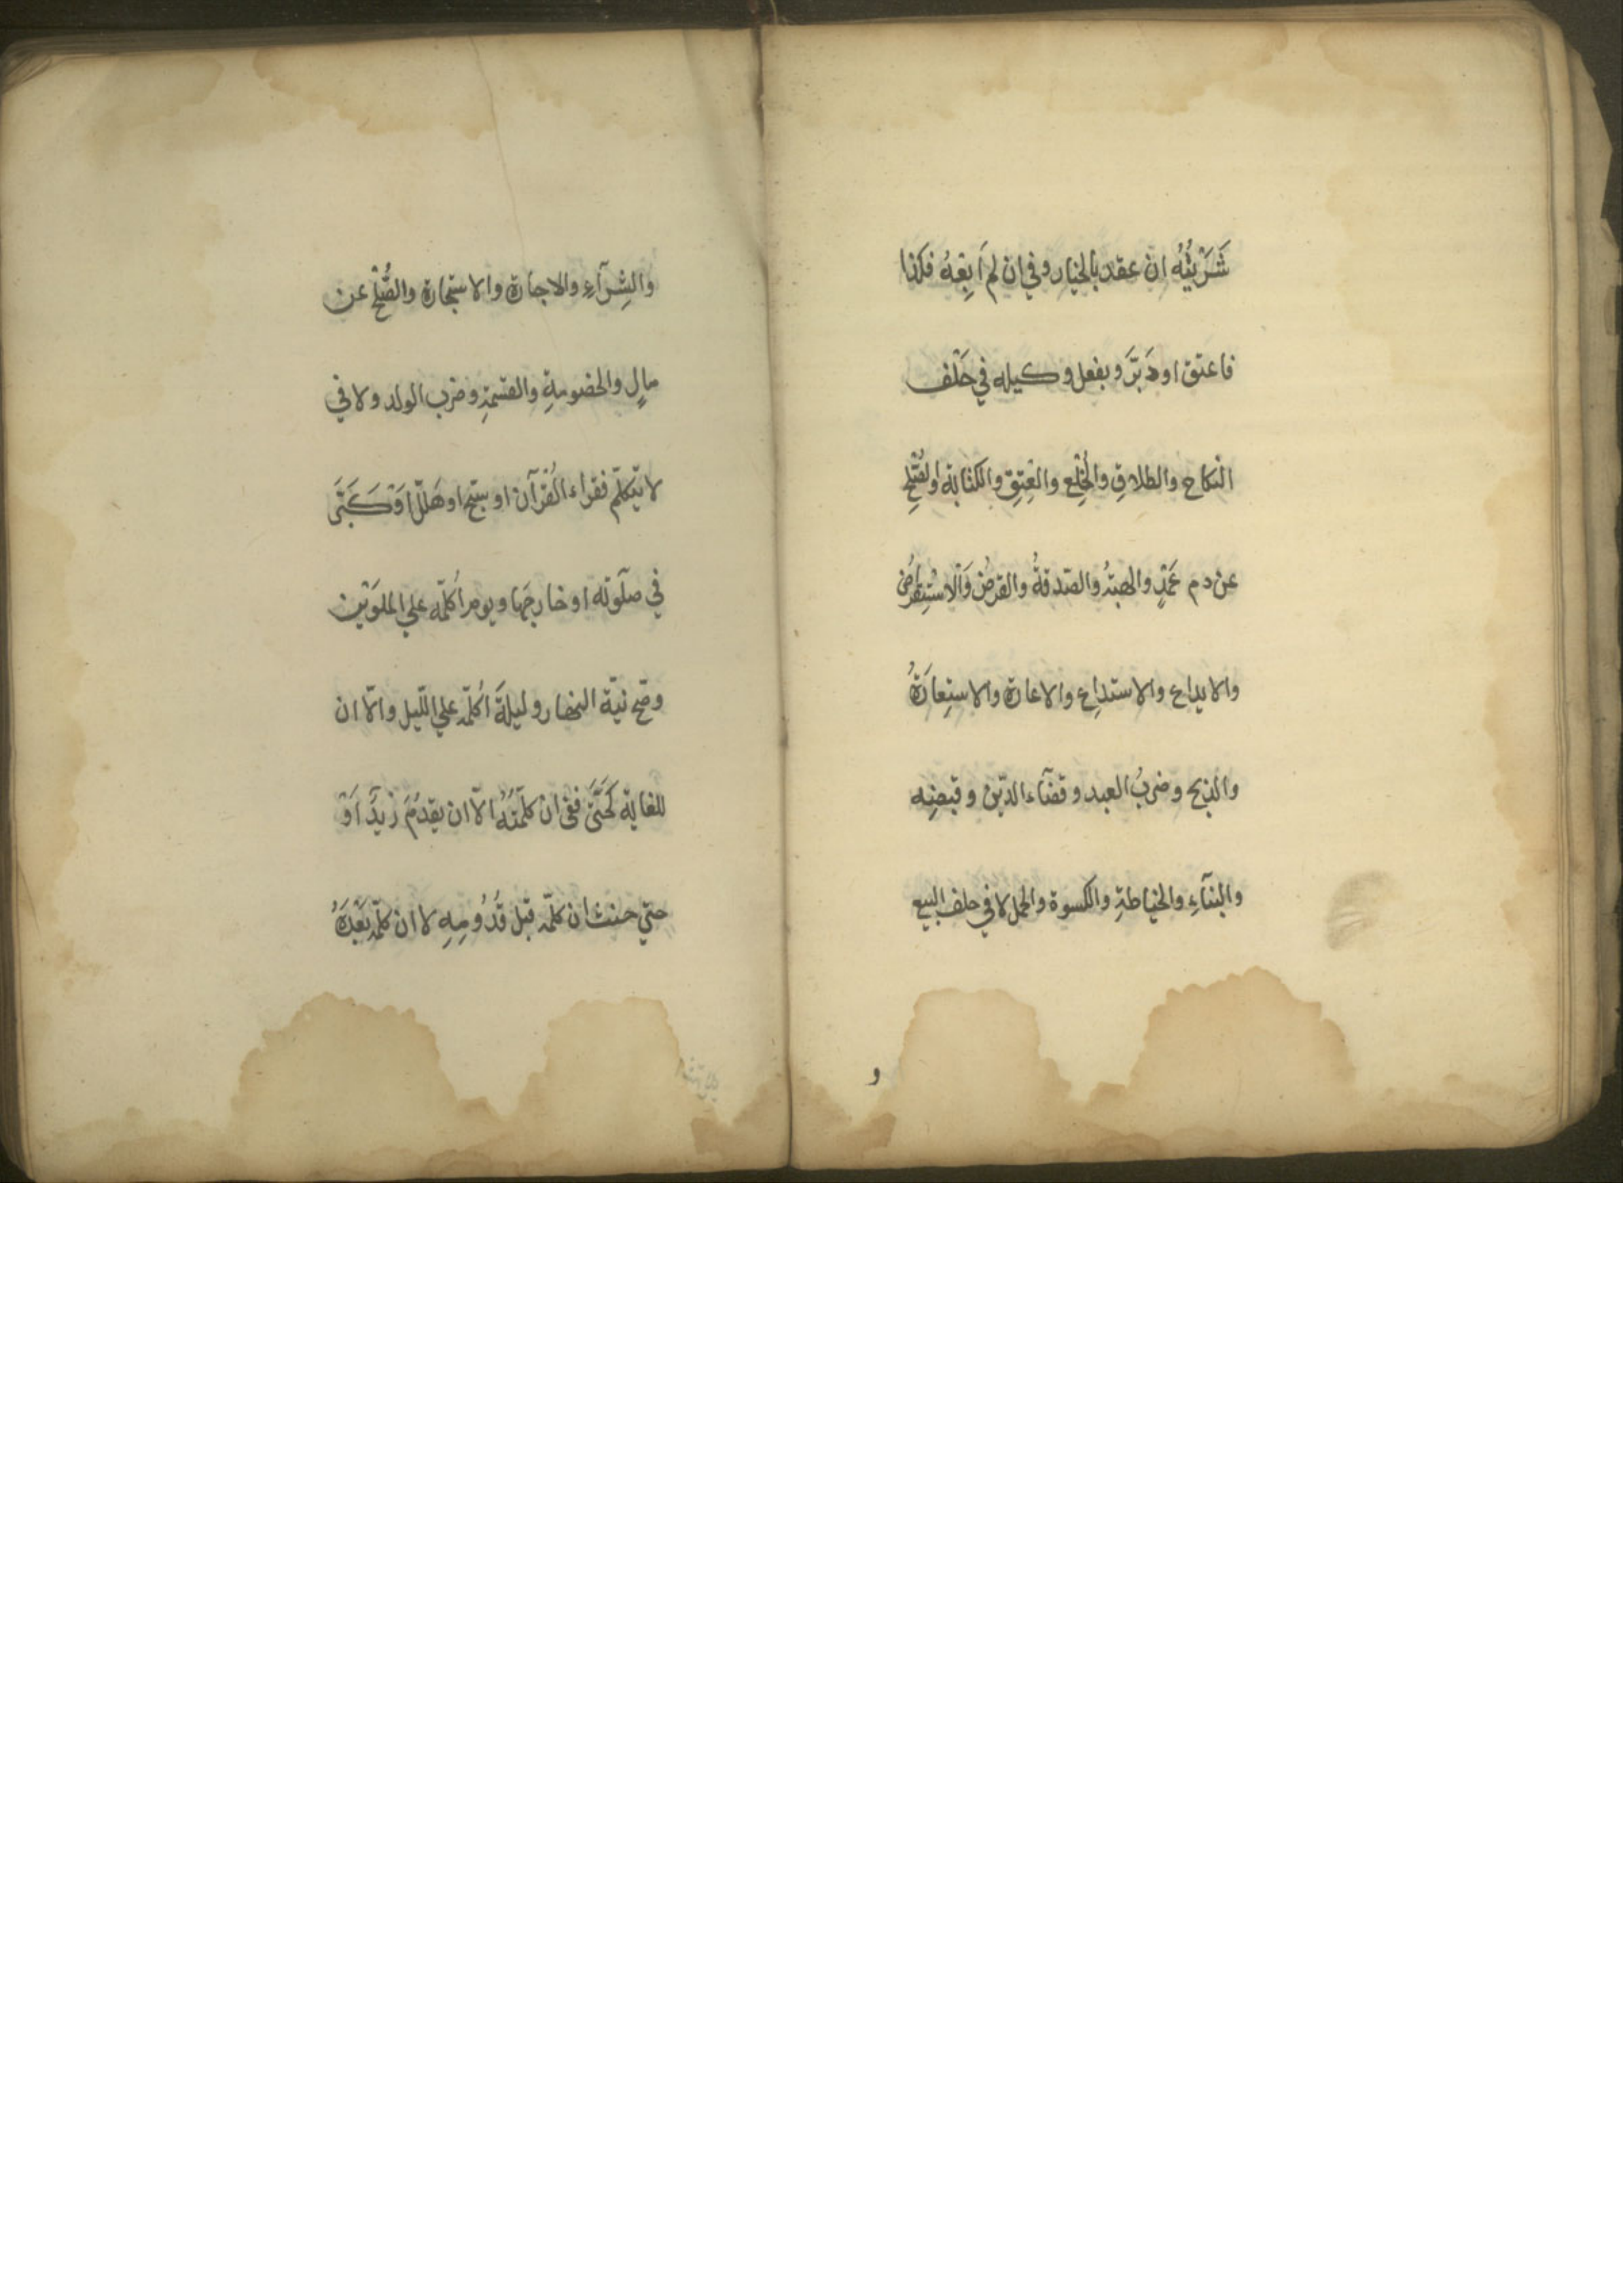 شَرَيْتُهُ ان عقد بالخيار وفي ان لم اَبِعْهُ فكذا
فاعتق او دَبَّرَ وبفعل وكيله في حَلْف
النكاح والطلاقِ والخُلْعِ والعِتِقِ والكتابة والصُّلْحِ
عن دم عَمْدٍ والهبةُ والصّدقةُ والقرضُ وَالْاسْتِقراضُ
والايداع والاستداع والاعارة والاستِعارَةُ
والذبح وضربُ العبد وقضآء الدّين وقبضِه
والبنآءِ والخياطةِ والكسوة والحمل لا في حلف البيع
و
والشِرآءِ والاجارة والاستجارة والصُّلْحِ عن
مالٍ والخصومةِ والقسمةِ وضرب الولد ولا في
لا يتكلّم فقراء القُرْآن او سبّح او هَلَّلَ اوْ كَبَّرَ
في صلَوته او خارجَها ويوم اُكلّمه علي الملوَيْن
وصّح نيّة النهار وليلةَ اُكلّمه علي اللّيل والّا ان
للغاية كَحَتّي ففي ان كلّمتُهُ الّا ان يقدُمَ زيدٌ اَوْ
حتي حنث ان كلّمه قبل قُدُومِهِ لا ان كلّمه بَعْدَهُ